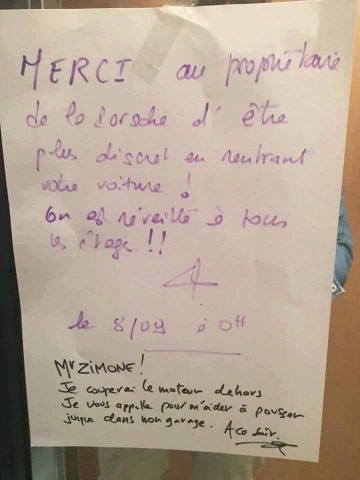 MERCI au propriétaire
de la Porsche d'être
plus discret en rentrant
votre voiture !
On est réveillé à tous
les étage !!
le 8/09 à 0H
Mr ZIMONE !
Je couperai le moteur dehors
Je vous appelle pour m'aider à pousser
jusque dans mon garage. A ce soir.